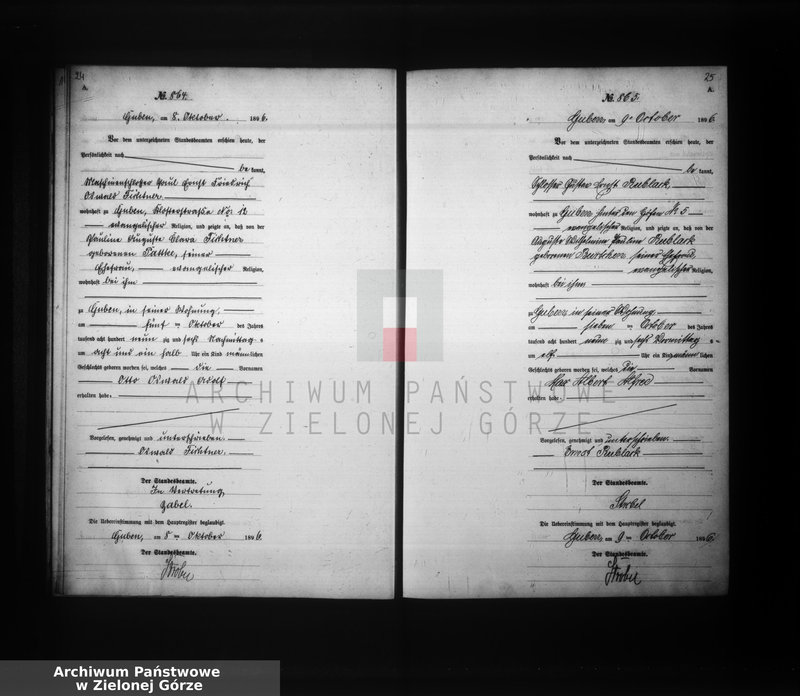 24
A.
№ 864.
Guben, am 8. Oktober 1896.
Vor dem unterzeichneten Standesbeamten erschien heute, der
Persönlichkeit nach
be kannt,
Maschinenschlosser Paul Ernst Friedrich
Oswald Fichtner
wohnhaft zu Guben, Klosterstraße Nr. 12
evangelischer Religion, und zeigte an, daß von der
Pauline Auguste Clara Fichtner
geborenen, seiner
Ehefrau, evangelischer Religion,
wohnhaft bei ihm
zu Guben, in seiner Wohnung,
am fünf ten Oktober des Jahres
tausend acht hundert neun zig und sechs Nachmittag s
um acht und ein halb Uhr ein Kind männlichen
Geschlechts geboren worden sei, welches die Vornamen
Otto Oswald Adolf
erhalten habe.
Vorgelesen, genehmigt und unterschrieben.
Oswald Fichtner.
Der Standesbeamte.
In Vertretung.
Zabel.
Die Uebereinstimmung mit dem Hauptregister beglaubigt.
Guben, am 8 ten Oktober 1896.
Der Standesbeamte.
Strobel
25
A.
№ 865.
Guben, am 9. October 1896.
Vor dem unterzeichneten Standesbeamten erschien heute, der
Persönlichkeit nach
be kannt,
Schlosser Gustav Ernst Rublack
wohnhaft zu Guben hinter den Höfen № 5
evangelischer Religion, und zeigte an, daß von der
Auguste Wilhelmine Pauline Rublack
geborenen seiner Ehefrau,
evangelischer Religion,
wohnhaft bei ihm
zu Guben in seiner Wohnung
am sieben ten October des Jahres
tausend acht hundert neun zig und sechs Vormittag s
um elf Uhr ein Kind männlichen
Geschlechts geboren worden sei, welches die Vornamen
Max Albert Alfred
erhalten habe.
Vorgelesen, genehmigt und unterschrieben.
Ernst Rublack
Der Standesbeamte.
Strobel
Die Uebereinstimmung mit dem Hauptregister beglaubigt.
Guben, am 9 ten October 1896.
Der Standesbeamte.
Strobel
ARCHIWUM PAŃSTWOWE
W ZIELONEJ GÓRZE
Archiwum Państwowe
w Zielonej Górze